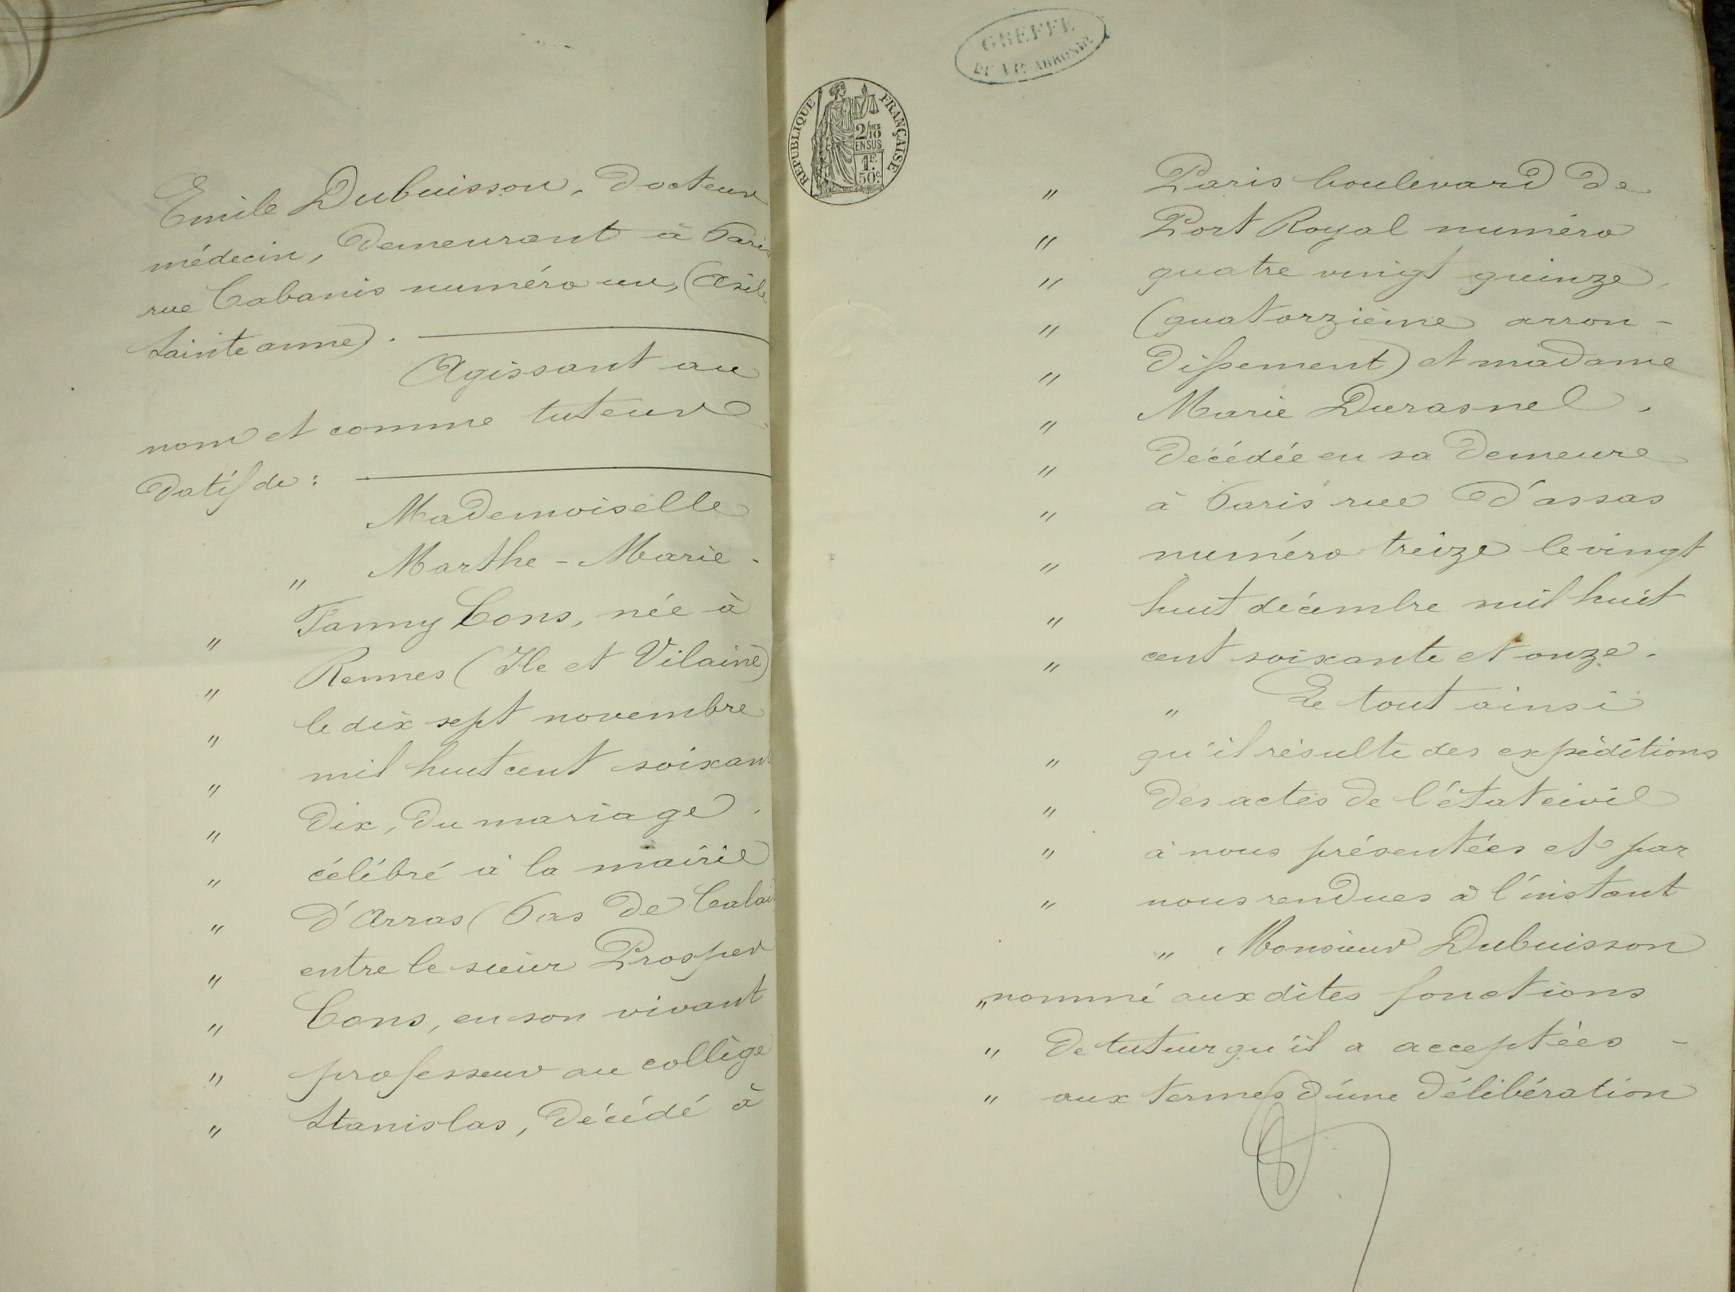 Emile Dubuisson, docteur
médecin, demeurant à Paris
rue Cabanis numéro un, (Asile
Sainte anne).
Agissant au
nom et comme tuteur
datif de :
Mademoiselle
" Marthe - Marie -
" Fanny Cons, née à
" Rennes (Ile et Vilaine)
" le dix sept novembre
" mil huit cent soixante
" dix, du mariage
" célébré à la mairie
" d'Arras (Pas de Calais
" entre le sieur Prosper
" Cons, en son vivant
" professeur au collège
" Stanislas, décédé à
GREFFE
REPUBLIQUE FRANÇAISE
2/10
EN SUS
1F.
50c.
" Paris boulevard de
" Port Royal numéro
" quatre vingt quinze,
" (quatorzième arron-
" dissement) et madame
" Marie Durasnel,
" décédée en sa demeure
" à Paris rue d'assas
" numéro treize le vingt
" huit décembre mil huit
" cent soixante et onze.
" Le tout ainsi
" qu'il résulte des expéditions
" des actes de l'état civil
" à nous présentées et par
" nous rendues à l'instant
" Monsieur Dubuisson
" nommé aux dites fonctions
" de tuteur qu'il a acceptées -
" aux termes d'une délibération